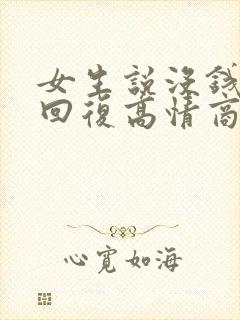 女生説没錢
回復高情商
心寬如海